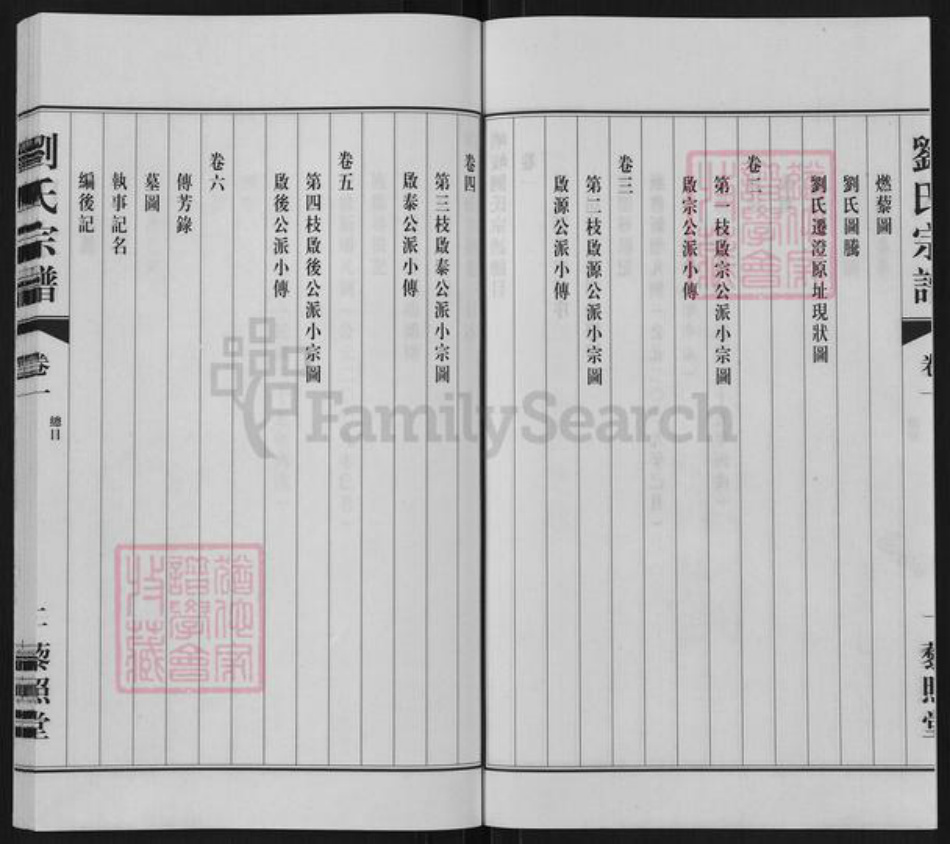 劉氏宗譜
卷一
總目
一
藜照堂
燃藜圖
劉氏圖騰
劉氏遷澄原址現狀圖
卷二
第一枝啟宗公派小宗圖
啟宗公派小傳
卷三
第二枝啟源公派小宗圖
啟源公派小傳
卷四
第三枝啟泰公派小宗圖
啟泰公派小傳
卷五
第四枝啟後公派小宗圖
啟後公派小傳
卷六
傳芳錄
墓圖
執事記名
編後記
劉氏宗譜
卷一
總目
二
藜照堂
譜學會
收藏
FamilySearch